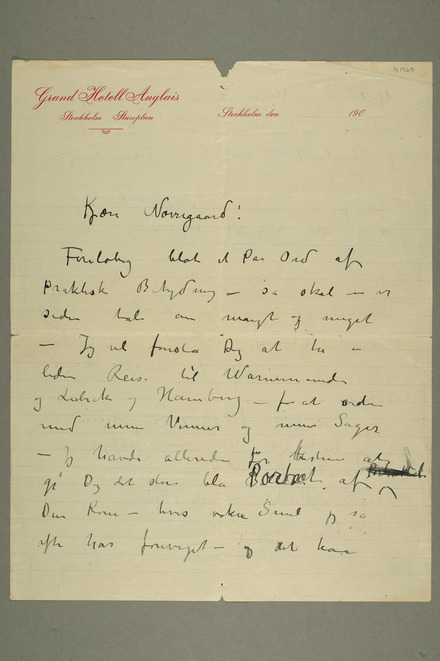 N 1969
Grand Hotell Anglais
Stockholm Stureplan
Stockholm den 190
Kjære Nørregaard!
Foreløbig blot et Par Ord af
praktisk Betydning – så skal vi
siden tale om meget og mangt
– Jeg vil foreslå Dig at ta en
liden Reise til Warnemünde
og Lübeck og Hamburg – for at ordne
med mine Venner og mine Sager
– Jeg havde allerede for bestemt at
gi Dig det store blå Portræt af
Din Kone – hvis Smil jeg så
ofte har – og det kan